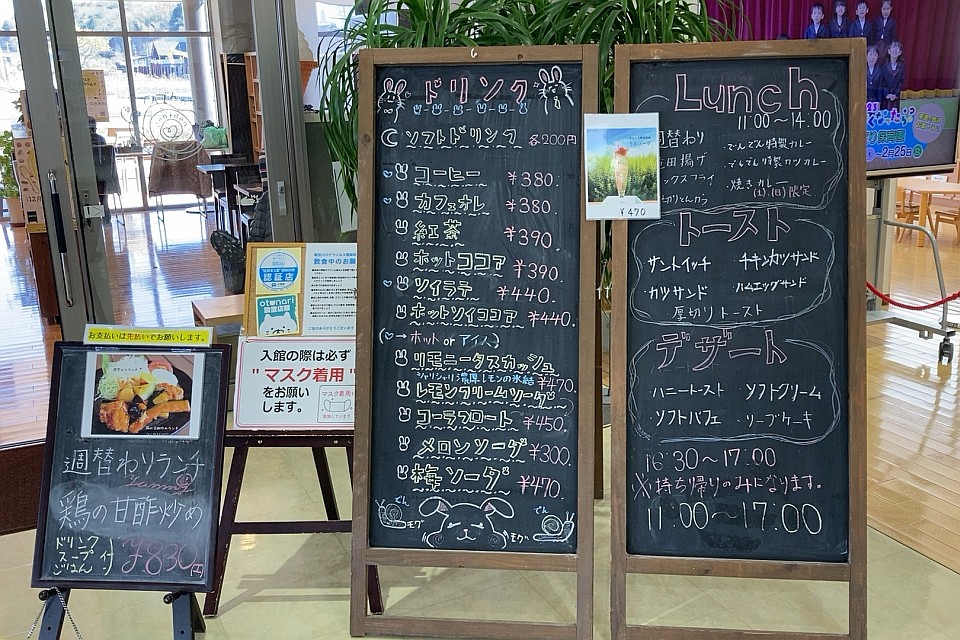 お支払いは先払いでお願いします。
週替わりランチ
Yummy
鶏の甘酢炒め
ドリンク
スープ 付
ごはん
¥830(円)
認証店
otonari
設置店舗
飲食中のお願い
入館の際は必ず
"マスク着用"
をお願い
します。
ドリンク
ソフトドリンク 各200円
コーヒー ¥380.
カフェオレ ¥380.
紅茶 ¥390.
ホットココア ¥390
ソイラテ ¥440.
ホットソイココア ¥440.
→ ホット or アイス
リモニータスカッシュ
シャリシャリ濃厚レモンの氷結 ¥470.
レモンクリームソーダ
コーラフロート ¥450.
メロンソーダ ¥300.
梅ソーダ ¥470.
でん でん
モグ モグ
¥470
Lunch
11:00～14:00
週替わり
田揚げ
ックスフライ
でんでん特製カレー
でんでん特製カツカレー
焼きカレー
(土)(日)限定
トースト
サンドイッチ チキンカツサンド
カツサンド ハムエッグサンド
厚切りトースト
デザート
ハニートースト ソフトクリーム
ソフトパフェ
16:30～17:00
※持ち帰りのみになります。
11:00～17:00
～2月25日